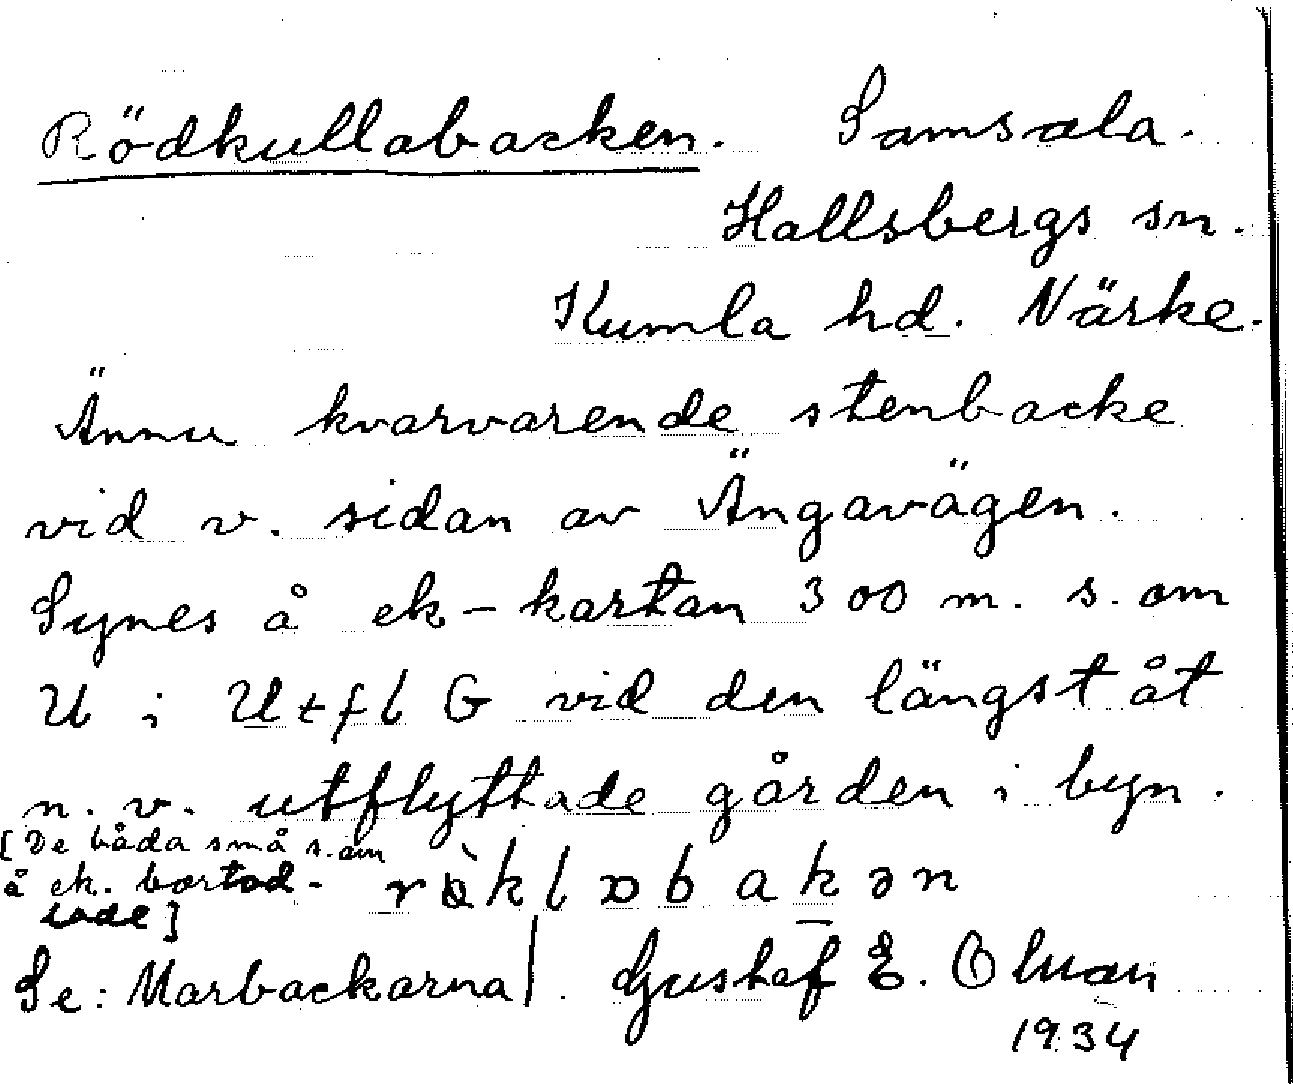 Rödkullabacken. Samsala.
Hallsbergs sn.
Kumla hd. Närke.
Ännu kvarvarende stenbacke
vid v. sidan av Ängavägen.
Synes å ek-kartan 300 m. s. om
U i Utfl G vid den längst åt
n. v. utflyttade gården i byn.
[De båda små s. om
å ek. bortod-
lade]
Se: Marbackarna
Gustaf E.
1934